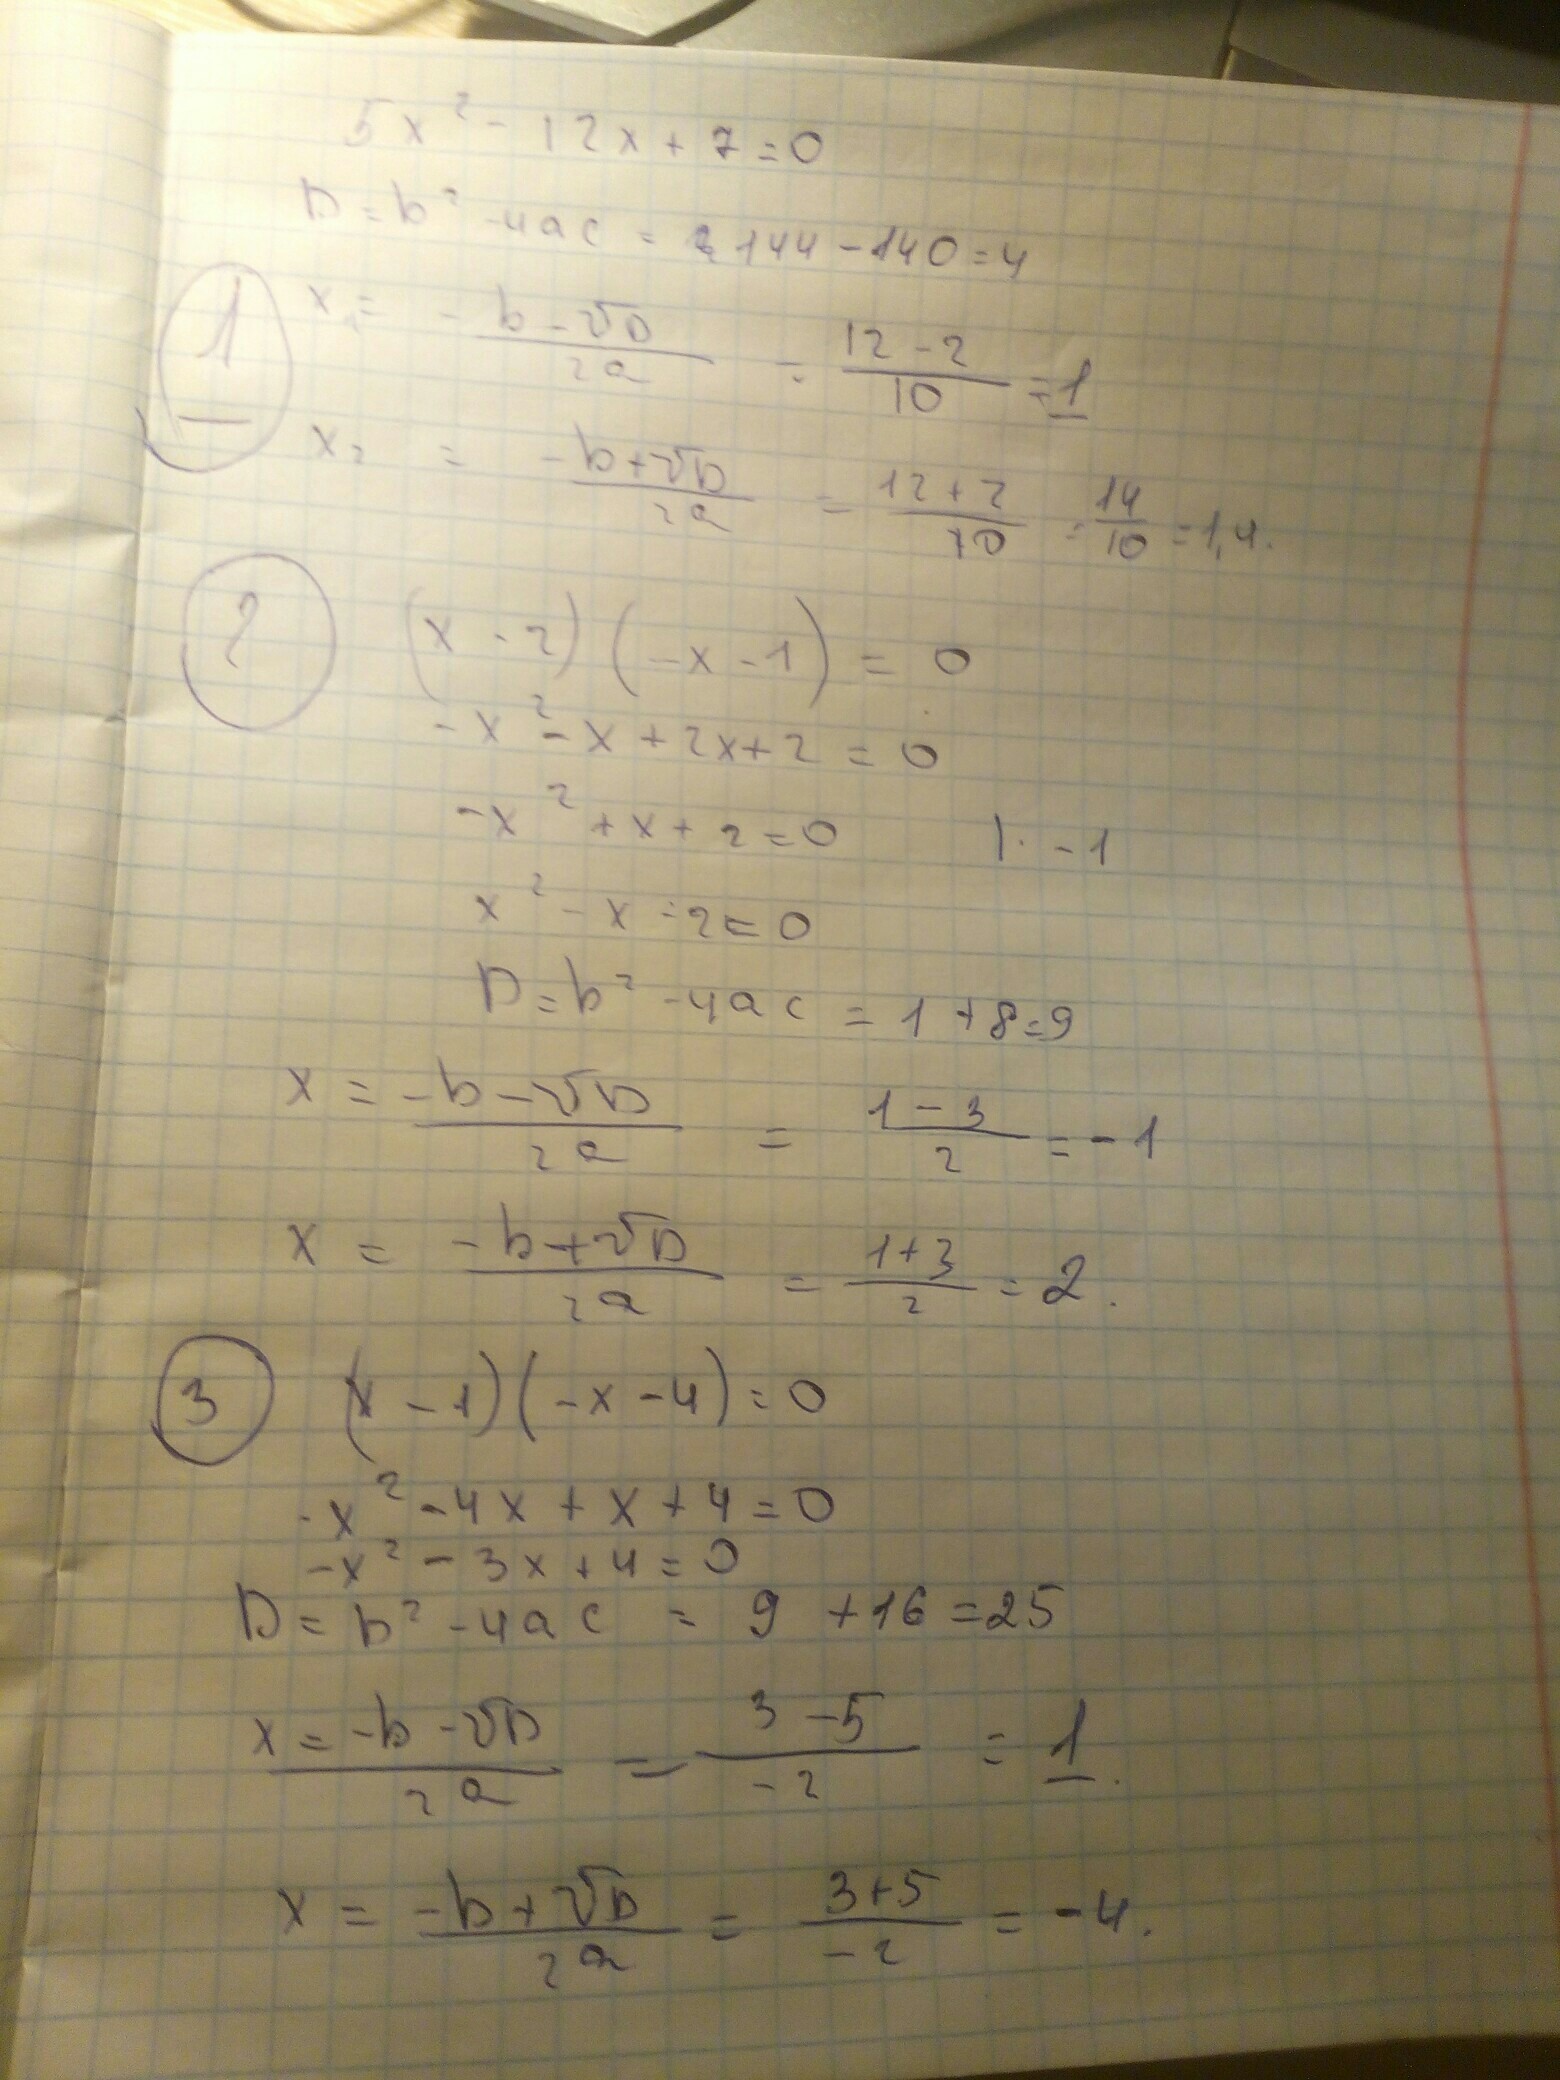 5x² - 12x + 7 = 0
D = b² - 4ac = 144 - 140 = 4
1
x₁ = (-b - √D)/2a = (12 - 2)/10 = 1
x₂ = (-b + √D)/2a = (12 + 2)/10 = 14/10 = 1,4.
2 (x - 2)(-x - 1) = 0
-x² - x + 2x + 2 = 0
-x² + x + 2 = 0 |· -1
x² - x - 2 = 0
D = b² - 4ac = 1 + 8 = 9
x = (-b - √D)/2a = (1 - 3)/2 = -1
x = (-b + √D)/2a = (1 + 3)/2 = 2.
3 (x - 1)(-x - 4) = 0
-x² - 4x + x + 4 = 0
-x² - 3x + 4 = 0
D = b² - 4ac = 9 + 16 = 25
x = (-b - √D)/2a = (3 - 5)/-2 = 1.
x = (-b + √D)/2a = (3 + 5)/-2 = -4.